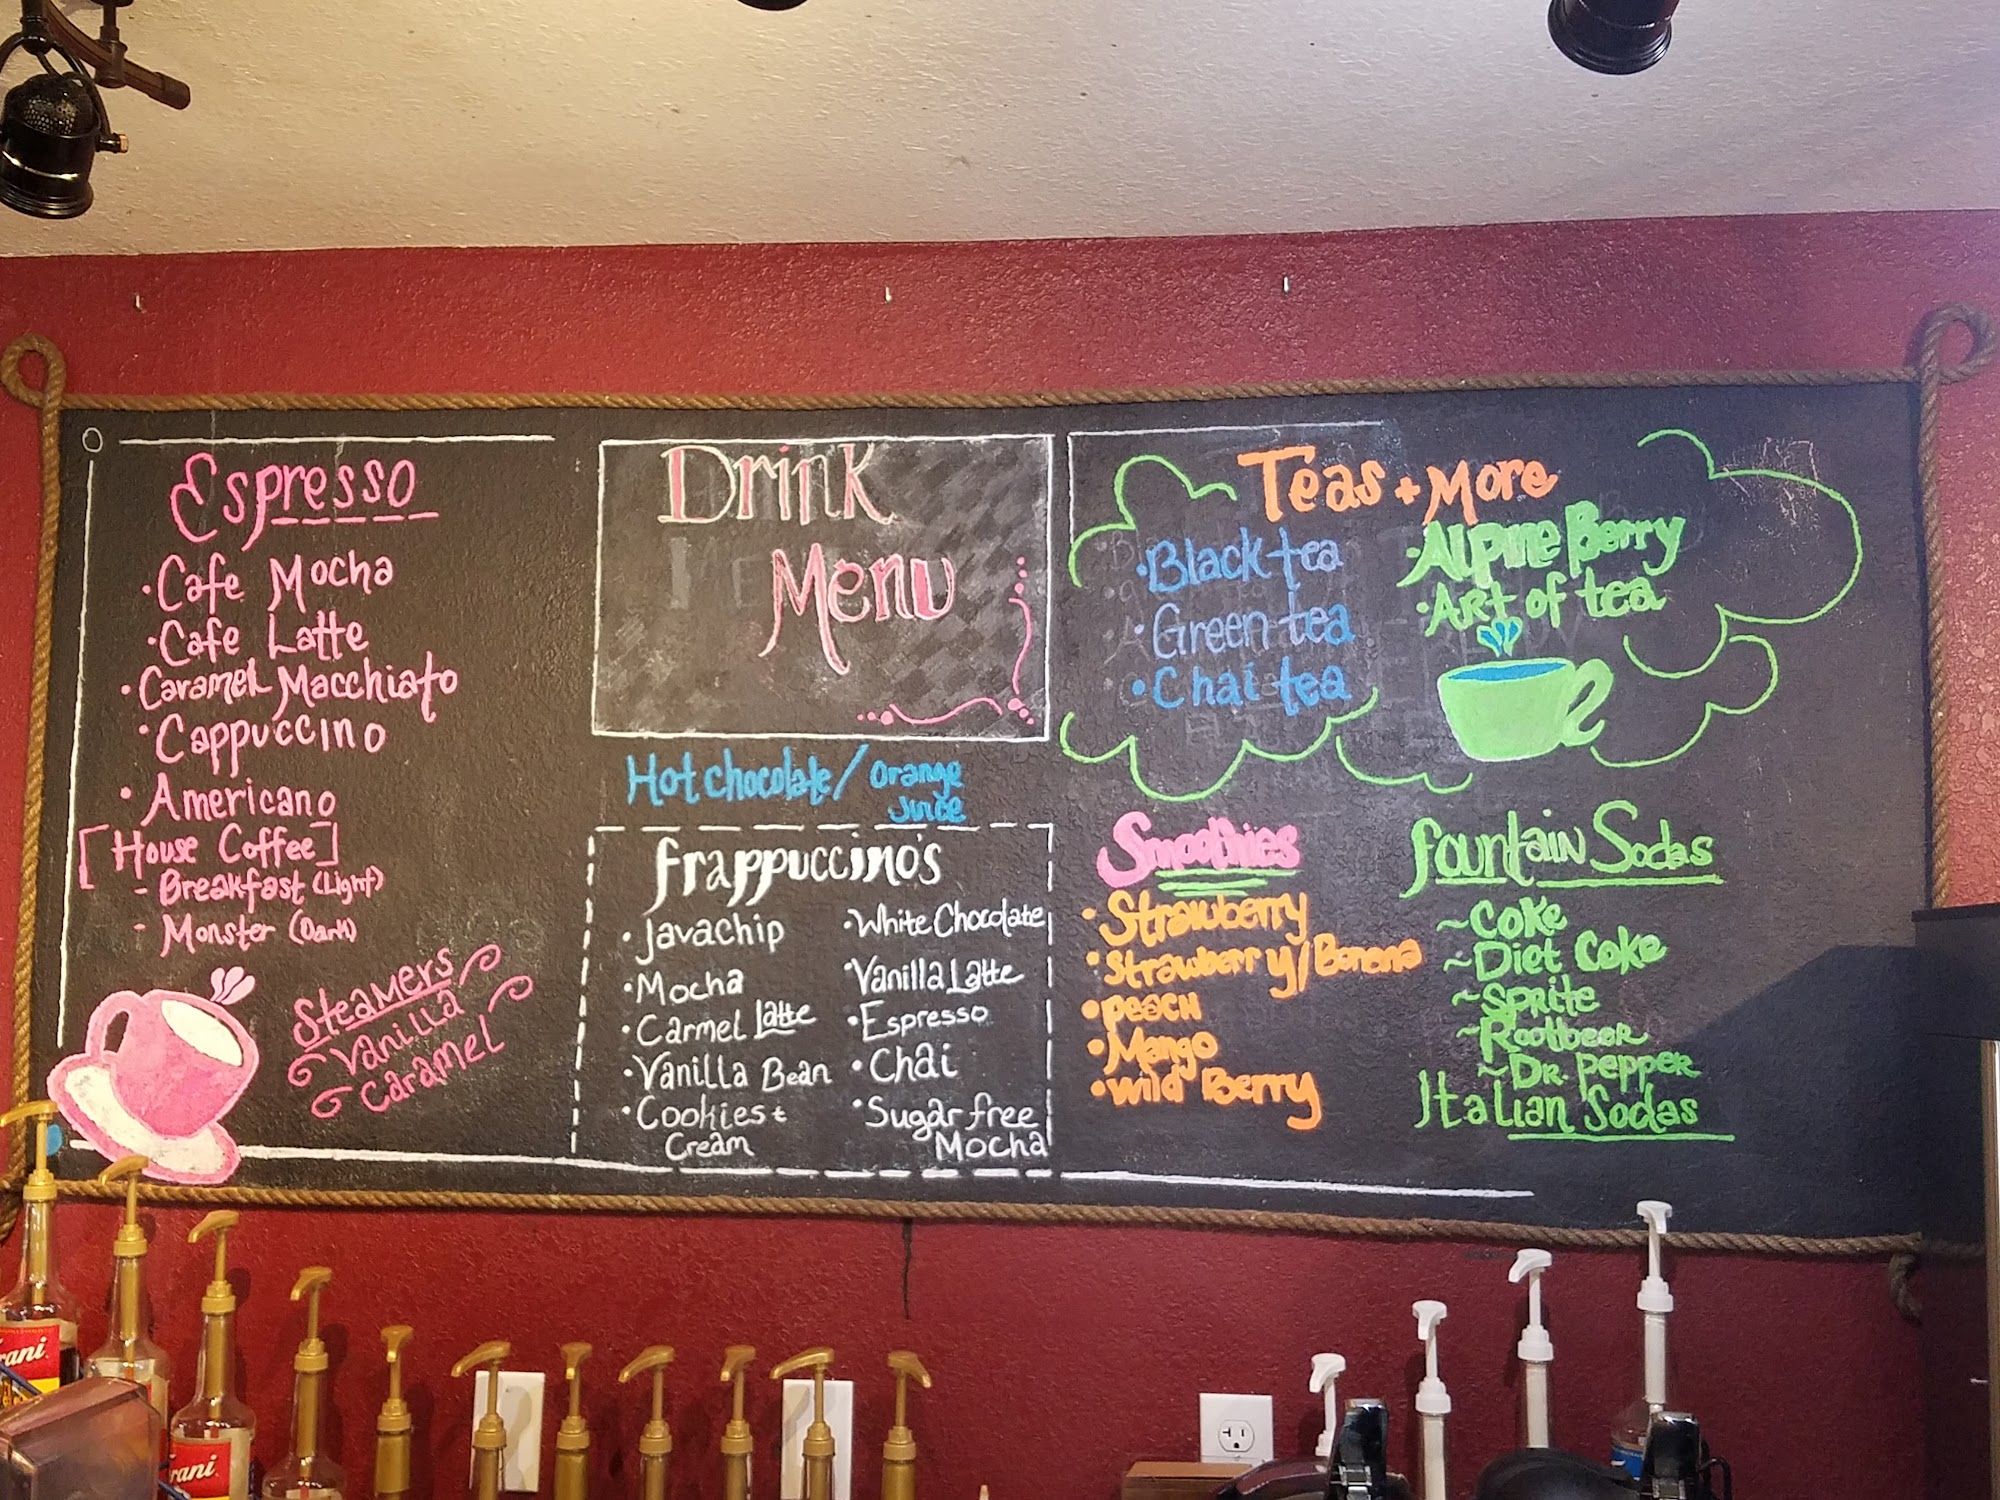 Espresso
• Cafe Mocha
• Cafe Latte
• Caramel Macchiato
• Cappuccino
• Americano
[House Coffee]
- Breakfast (Light)
- Monster (Dark)
Steamers
Vanilla
Caramel
Drink
Menu
Hot chocolate / Orange
Juice
frappuccino's
• Javachip
• Mocha
• Carmel Latte
• Vanilla Bean
• Cookies +
Cream
• White Chocolate
• Vanilla Latte
• Espresso
• Chai
• Sugar free
Mocha
Teas + More
• Black tea
• Green tea
• Chai tea
• Alpine Berry
• Art of tea
Smoothies
• Strawberry
• Strawberry/Banana
• Peach
• Mango
• Wild Berry
Fountain Sodas
~ Coke
~ Diet Coke
~ Sprite
~ Rootbeer
~ Dr. Pepper
Italian Sodas
rani
rani